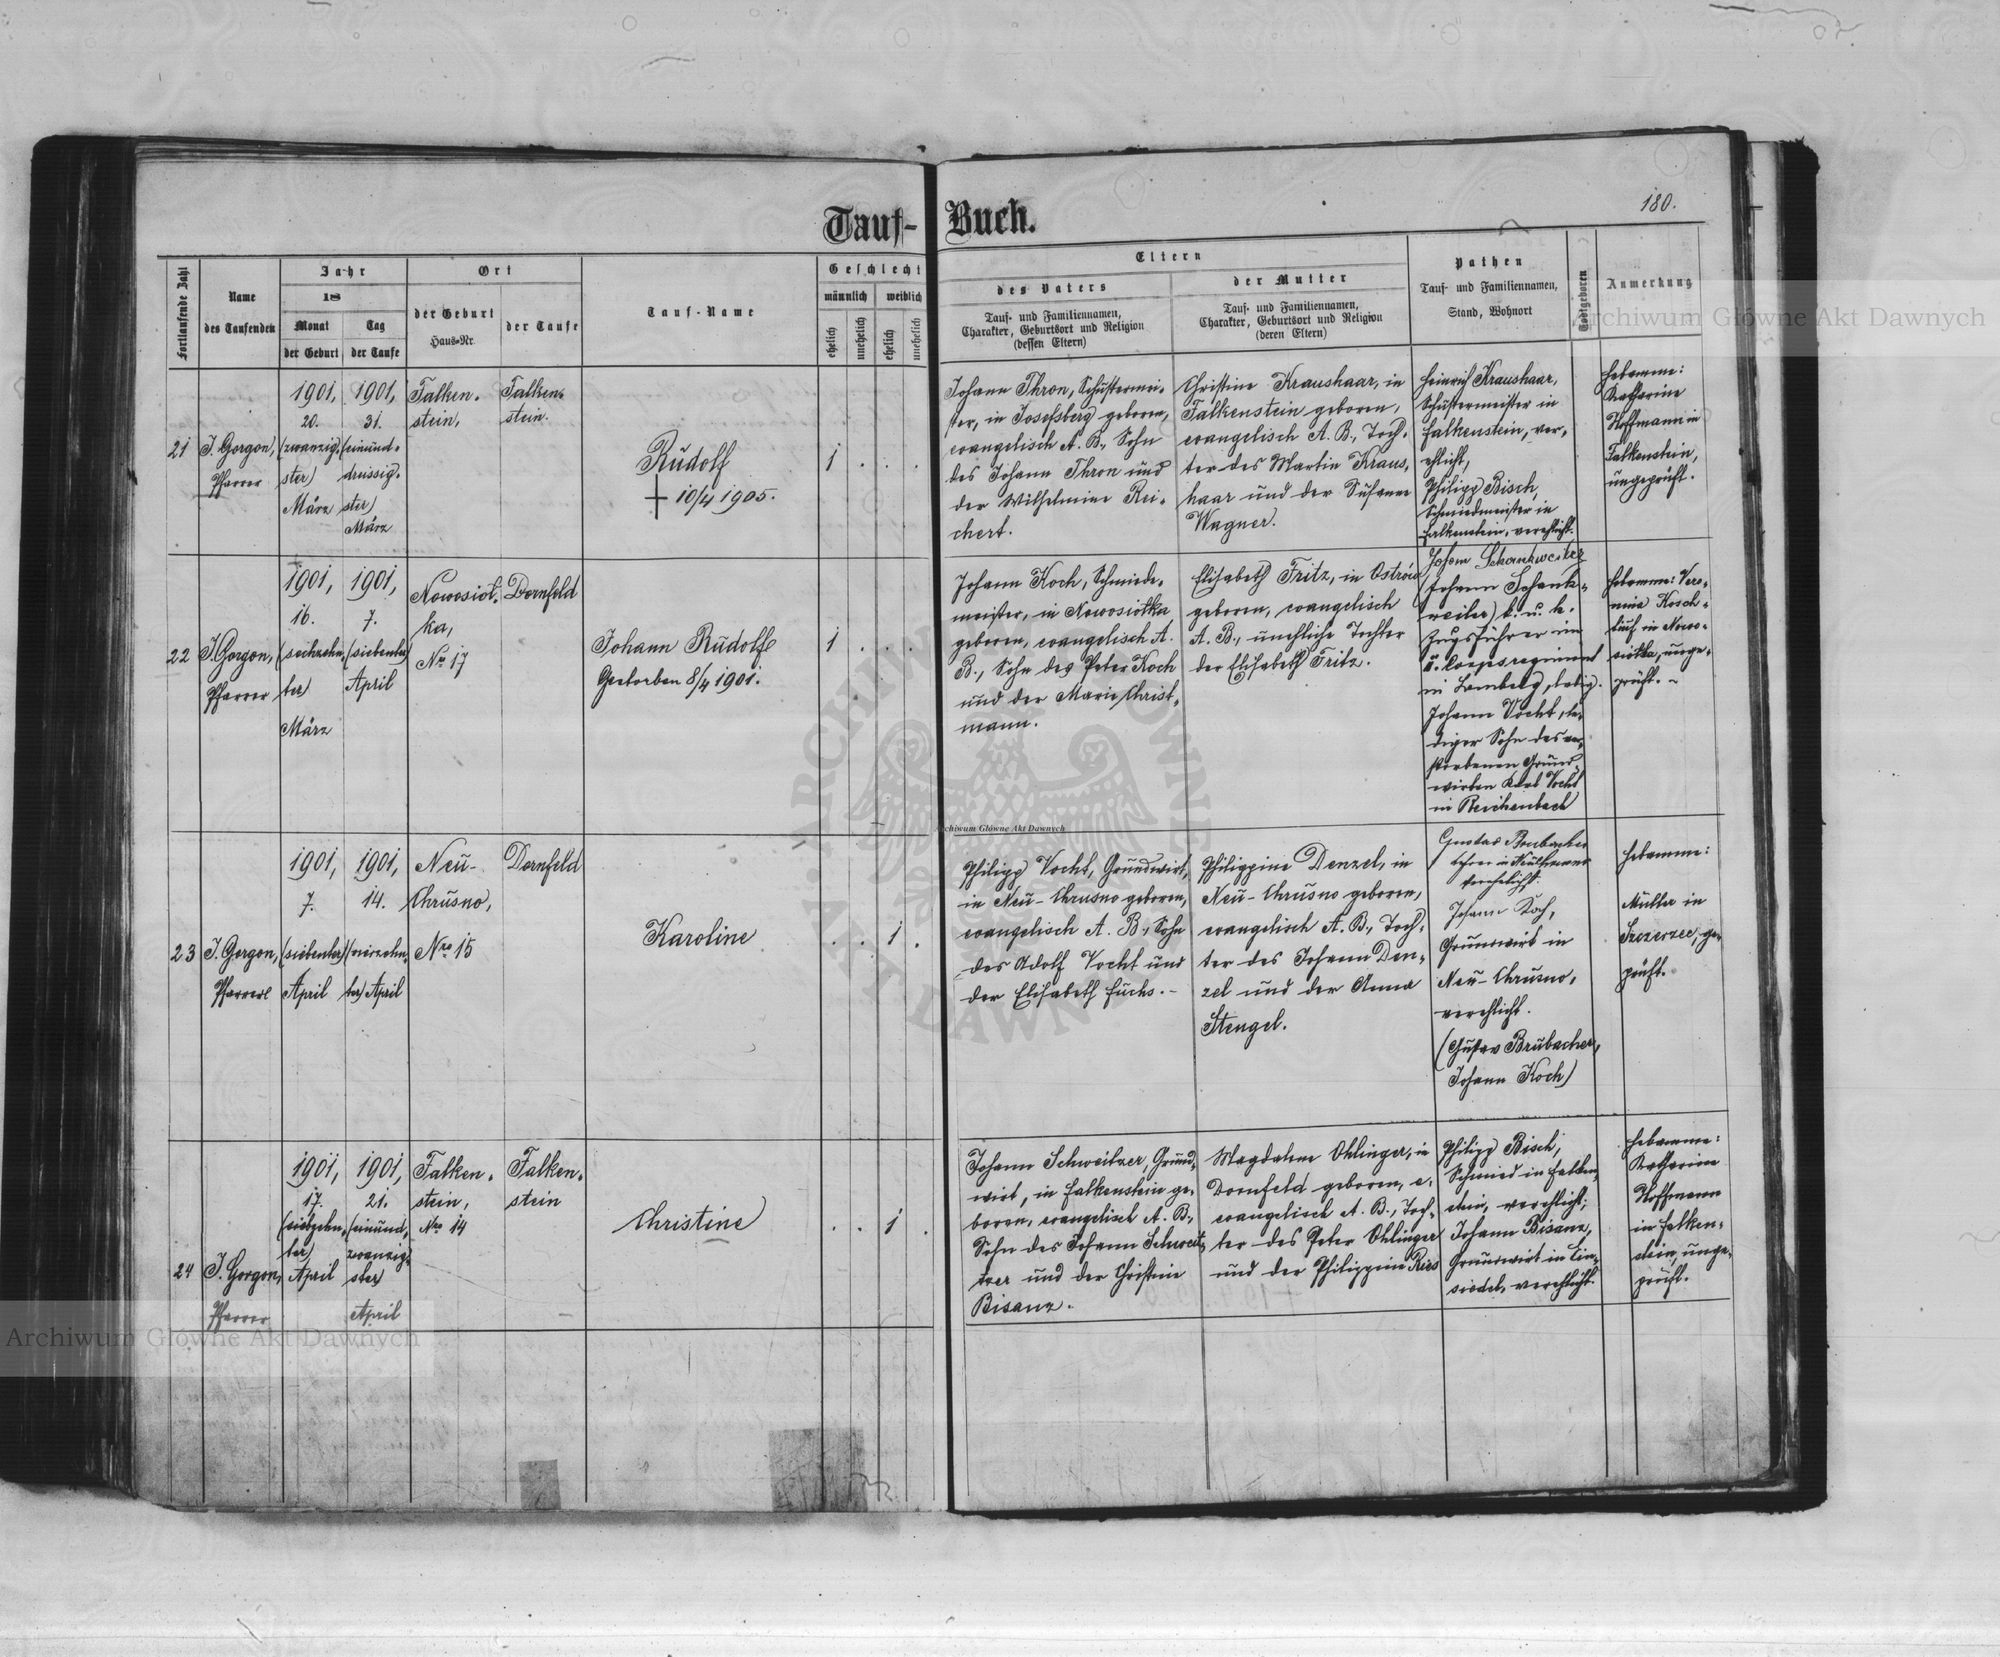 180.
Tauf-Buch.
Fortlaufende Zahl
Name
des Taufenden
Jahr
18
Monat
der Geburt
Tag
der Taufe
Ort
der Geburt
Haus-Nr.
der Taufe
Tauf-Name
Geschlecht
männlich
weiblich
ehelich
unehelich
ehelich
unehelich
Eltern
des Vaters
Tauf- und Familiennamen,
Charakter, Geburtsort und Religion
(dessen Eltern)
der Mutter
Tauf- und Familiennamen,
Charakter, Geburtsort und Religion
(deren Eltern)
Pathen
Tauf- und Familiennamen,
Stand, Wohnort
Todtgeboren
Anmerkung
21
J. Gorgon,
Pfarrer
1901,
20.
(zwanzig-
ster)
März
1901,
31.
(einund-
dreissig-
ster)
März
Falken-
stein,
Falken-
stein.
Rudolf
† 10/4 1905.
1 . . .
Johann Thron, Schustermei-
ster, in Josefsberg geboren,
evangelisch A. B., Sohn
des Johann Thron und
der Wilhelmine Rei-
chert.
Christine Kraushaar, in
Falkenstein geboren,
evangelisch A. B., Toch-
ter des Martin Kraus-
haar und der Susanne
Wagner.
Heinrich Kraushaar,
Schustermeister in
Falkenstein, ver-
ehlicht,
Philipp Bisch,
Schmiedmeister in
Falkenstein, verehlicht.
Hebamme:
Katharine
Hoffmann in
Falkenstein,
ungeprüft.
22
J. Gorgon,
Pfarrer
1901,
16.
(sechzehn-
ter)
März
1901,
7.
(siebenter)
April
Nowosiol-
ka,
No 17
Dornfeld
Johann Rudolf
Gestorben 8/4 1901.
1 . . .
Johann Koch, Schmiede-
meister, in Nowosiołka
geboren, evangelisch A.
B., Sohn des Peter Koch
und der Marie Christ-
mann.
Elisabeth Fritz, in Ostrów
geboren, evangelisch
A. B., unehliche Tochter
der Elisabeth Fritz.
Johann Schankweiler
(Johann Schank-
weiler) k. u. k.
Zugsführer im
Corpsregiment
in Lemberg, ledig.
Johann Vocht, le-
diger Sohn des ver-
storbenen Grund-
wirten Karl Vocht
in Reichenbach
Hebamme: Vero-
nina
in Nowo-
siołka, unge-
prüft. -
23
J. Gorgon,
Pfarrer
1901,
7.
(siebenter)
April
1901,
14.
(vierzehn-
ter) April
Neu-
Chrusno,
Nro 15
Dornfeld
Karoline
. . 1 .
Philipp Vocht, Grundwirt,
in Neu-Chrusno geboren,
evangelisch A. B., Sohn
des Adolf Vocht und
der Elisabeth Fuchs. -
Philippine Denzel, in
Neu-Chrusno geboren,
evangelisch A. B., Toch-
ter des Johann Den-
zel und der Anna
Stengel.
Gustav Brubacher
Lehrer in
verehelicht.
Johann Koch,
Grundwirt in
Neu-Chrusno,
verehlicht.
(Gustav Brubacher,
Johann Koch)
Hebamme:
Müller in
Szczerzec, ge-
prüft.
24
J. Gorgon,
Pfarrer
1901,
17.
(siebzehn-
ter)
April
1901,
21.
(einund-
zwanzig-
ster)
April
Falken-
stein,
Nro 14
Falken-
stein
Christine
. . 1 .
Johann Schweitzer, Grund-
wirt, in Falkenstein ge-
boren, evangelisch A. B.,
Sohn des Johann Schweit-
zer und der Christine
Bisanz.
Magdalene Ohlinger, in
Dornfeld geboren, e-
vangelisch A. B., Toch-
ter des Peter Ohlinger
und der Philippine Ries
Philipp Bisch,
Schmied in Falken-
stein, verehlicht;
Johann Bisanz,
Grundwirt in Ein-
siedel, verehlicht.
Hebamme:
Katharine
Hoffmann
in Falken-
stein, unge-
prüft.
Archiwum Główne Akt Dawnych
Archiwum Główne Akt Dawnych
Archiwum Główne Akt Dawnych